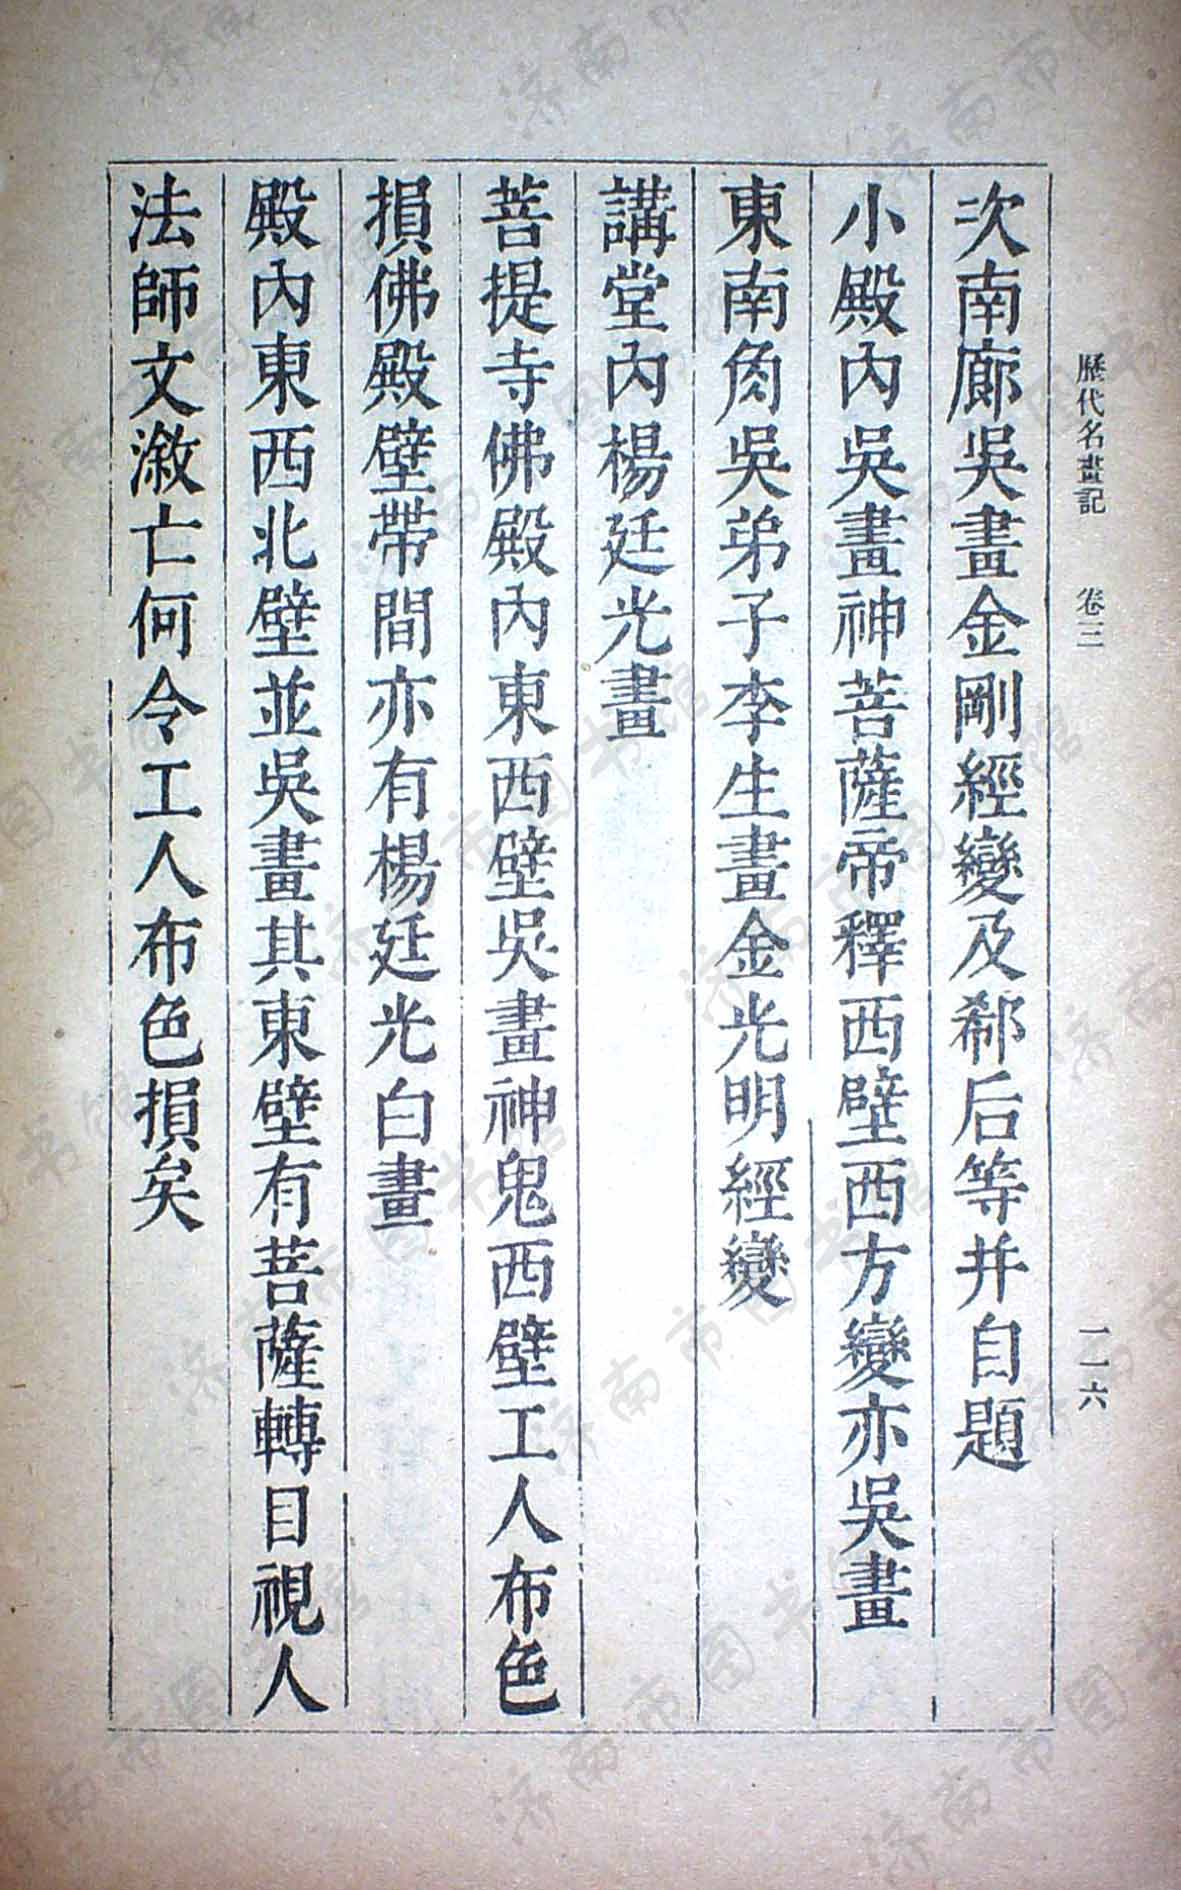 歷代名畫記 卷三 一一六
次南廊吳畫金剛經變及郗后等并自題
小殿內吳畫神菩薩帝釋西壁西方變亦吳畫
東南角吳弟子李生畫金光明經變
講堂內楊廷光畫
菩提寺佛殿內東西壁吳畫神鬼西壁工人布色
損佛殿壁帶間亦有楊廷光白畫
殿內東西北壁並吳畫其東壁有菩薩轉目視人
法師文溆亡何令工人布色損矣
济南市图书馆